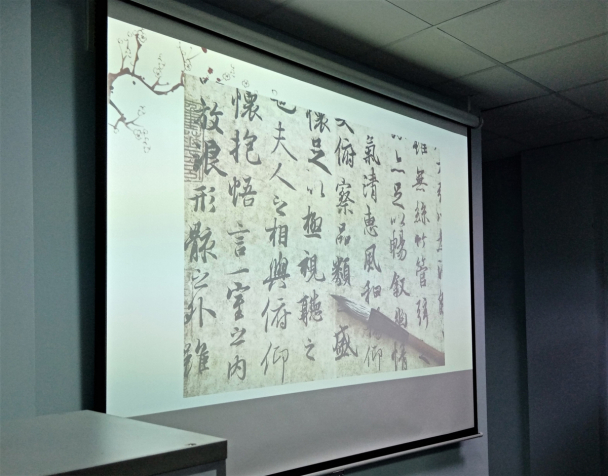 無絲竹管弦
足以暢敘幽情
氣清惠風和仰
俯察品類盛
懷足以極視聽之
也夫人之相與俯仰
懷抱悟言一室之内
放浪形骸之外雖